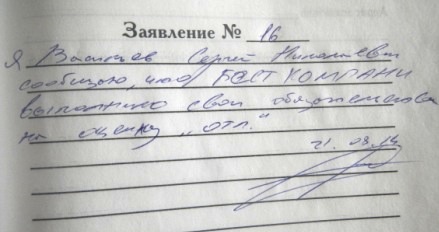 Заявление № 16
Я Васильев Сергей Николаевич
сообщаю, что БЭСТ КОМПАНИ
выполнило свои обязательства
на оценку „отл."
21.03.14